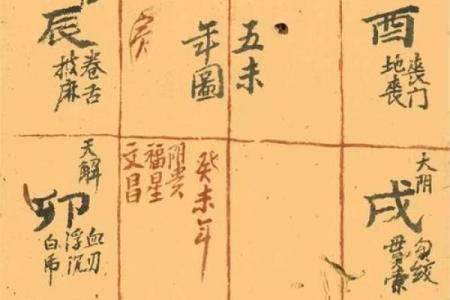 五未
年圖
酉
喪门
地喪
辰
卷舌
披麻
癸未年
阴贵
福星
文昌
大阴
戌
勾绞
贯索
天解
卯
血刃
浮沉
白虎